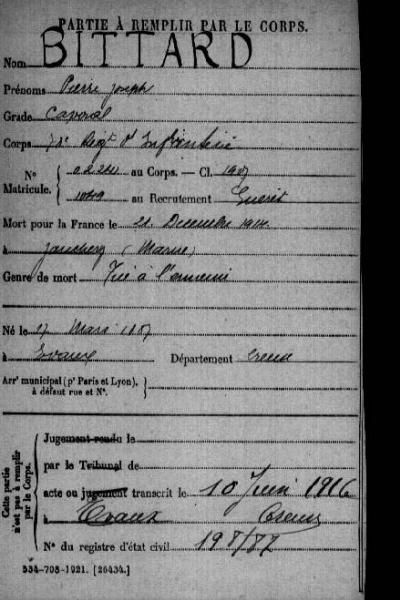 PARTIE À REMPLIR PAR LE CORPS.
Nom BITTARD
Prénoms Pierre Joseph
Grade Caporal
Corps 78e Regt d'Infanterie
N° Matricule. { 02241 au Corps. — Cl. 1907
1049 au Recrutement Guéret
Mort pour la France le 21 Decembre 1914
à Jonchery (Marne)
Genre de mort Tué à l'ennemi
Né le 17 Mars 1887
à Evaux Département Creuse
Arrt municipal (pr Paris et Lyon), à défaut rue et N°. }
Cette partie n'est pas à remplir par le Corps.
Jugement rendu le
par le Tribunal de
acte ou jugement transcrit le 10 Juin 1916
à Evaux Creuse
N° du registre d'état civil 198/87
534-708-1921. [26434.]